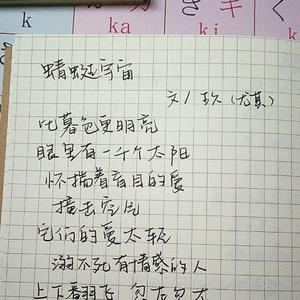 k カ き キ く
ka ki k
蜻蜓宇宙
文/ (尤其)
比暮色更明亮
眼里有一千个太阳
怀揣着盲目的爱
撞击
它们的爱太软
溺不死有情感的人
上下翻飞 忽左忽右